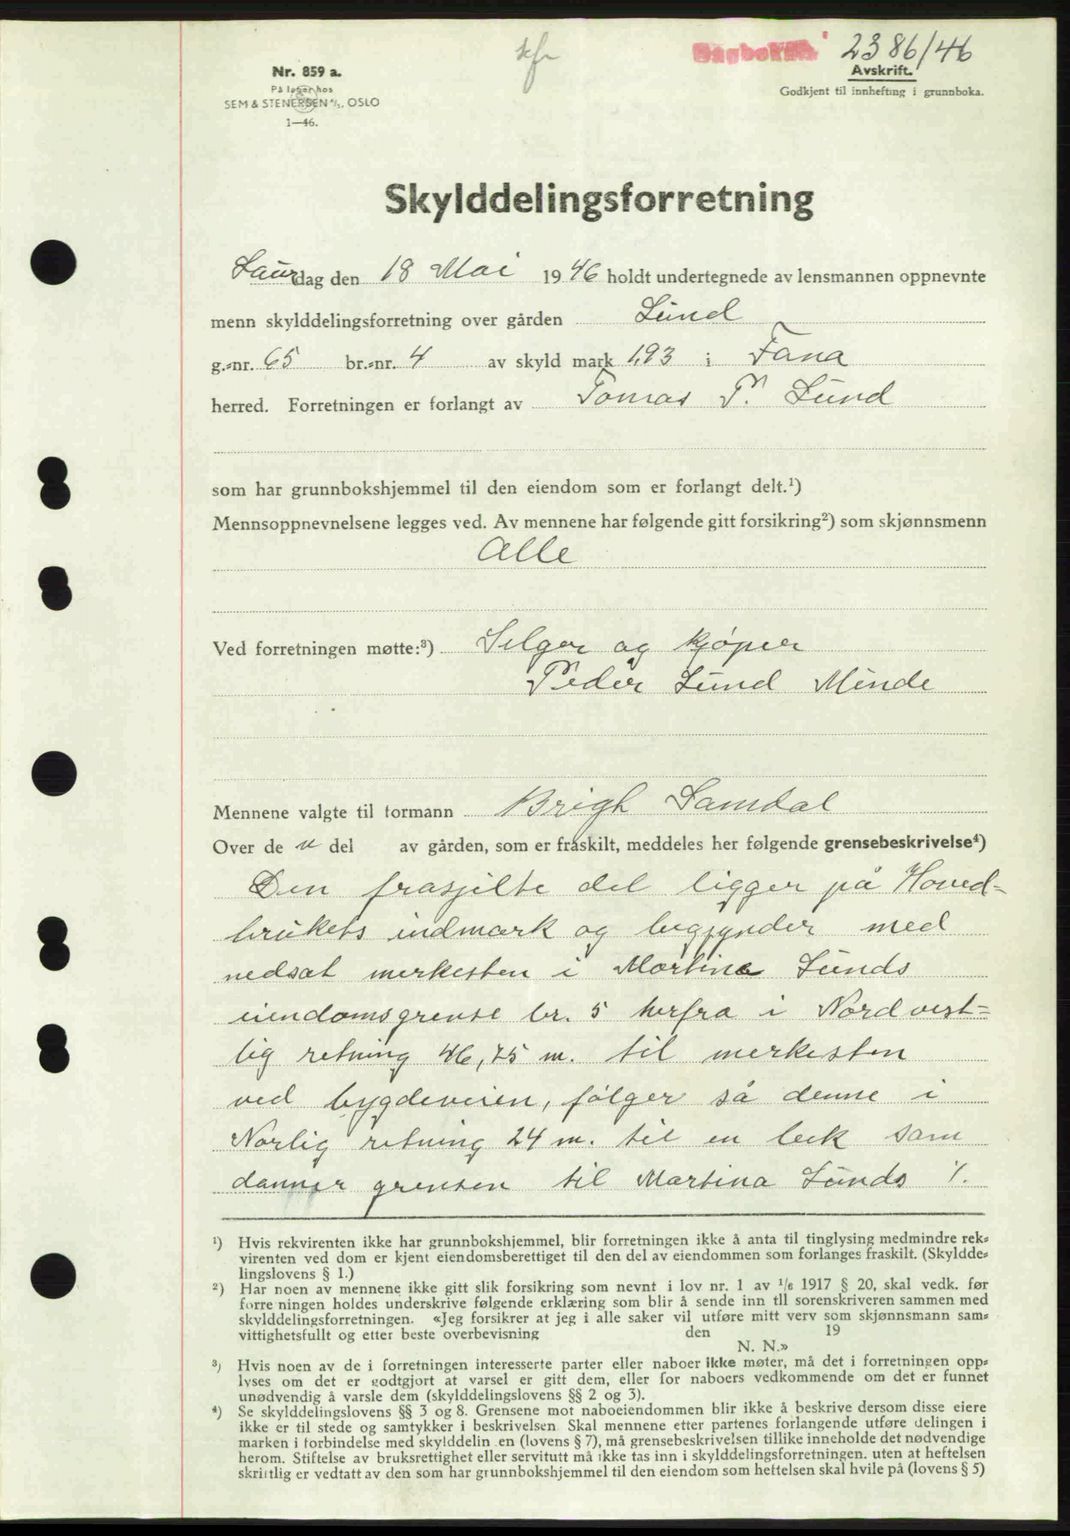 Dagbok nr. 2386/46
Nr. 859 a.
På lager hos
SEM & STENERSEN A/S, OSLO
1—46.
Avskrift.
Godkjent til innhefting i grunnboka.
Skylddelingsforretning
Laurdag den 18 Mai 1946 holdt undertegnede av lensmannen oppnevnte
menn skylddelingsforretning over gården Lund
g.-nr. 65 br.-nr. 4 av skyld mark 1,93 i Fana
herred. Forretningen er forlangt av Tomas P. Lund
som har grunnbokshjemmel til den eiendom som er forlangt delt.¹)
Mennsoppnevnelsene legges ved. Av mennene har følgende gitt forsikring²) som skjønnsmenn
Alle
Ved forretningen møtte:³) Selger og kjøper
Peder Lund Minde
Mennene valgte til formann Brigh Samdal
Over de n del av gården, som er fraskilt, meddeles her følgende grensebeskrivelse⁴)
Den frasjilte del ligger på Hoved-
brukets indmark og begjynder med
nedsat merkesten i Martine Lunds
eiendomsgrense br. 5 herfra i Nordvest-
lig retning 46,75 m. til merkesten
ved bygdeveien, følger så denne i
Norlig retning 24 m. til en bek som
danner grensen til Martina Lunds %.
¹) Hvis rekvirenten ikke har grunnbokshjemmel, blir forretningen ikke å anta til tinglysing medmindre rek-
virenten ved dom er kjent eiendomsberettiget til den del av eiendommen som forlanges fraskilt. (Skyldde-
lingslovens § 1.)
²) Har noen av mennene ikke gitt slik forsikring som nevnt i lov nr. 1 av 1/6 1917 § 20, skal vedk. før
forre ningen holdes underskrive følgende erklæring som blir å sende inn til sorenskriveren sammen med
skylddelingsforretningen. «Jeg forsikrer at jeg i alle saker vil utføre mitt verv som skjønnsmann sam-
vittighetsfullt og etter beste overbevisning den 19
N. N.»
³) Hvis noen av de i forretningen interesserte parter eller naboer ikke møter, må det i forretningen opp-
lyses om det er godtgjort at varsel er gitt dem, eller for naboers vedkommende om det er funnet
unødvendig å varsle dem (skylddelingslovens §§ 2 og 3).
⁴) Se skylddelingslovens §§ 3 og 8. Grensene mot naboeiendommen blir ikke å beskrive dersom disse eiere
ikke er til stede og samtykker i beskrivelsen Skal mennene etter partenes forlangende utføre delingen i
marken i forbindelse med skylddelin en (lovens § 7), må grensebeskrivelsen tillike inneholde det nødvendige
herom. Stiftelse av bruksrettighet eller servitutt må ikke tas inn i skylddelingsforretningen. uten at heftelsen
skriftlig er vedtatt av den som har grunnbokshjemmel til den eiendom som heftelsen skal hvile på (lovens § 5)